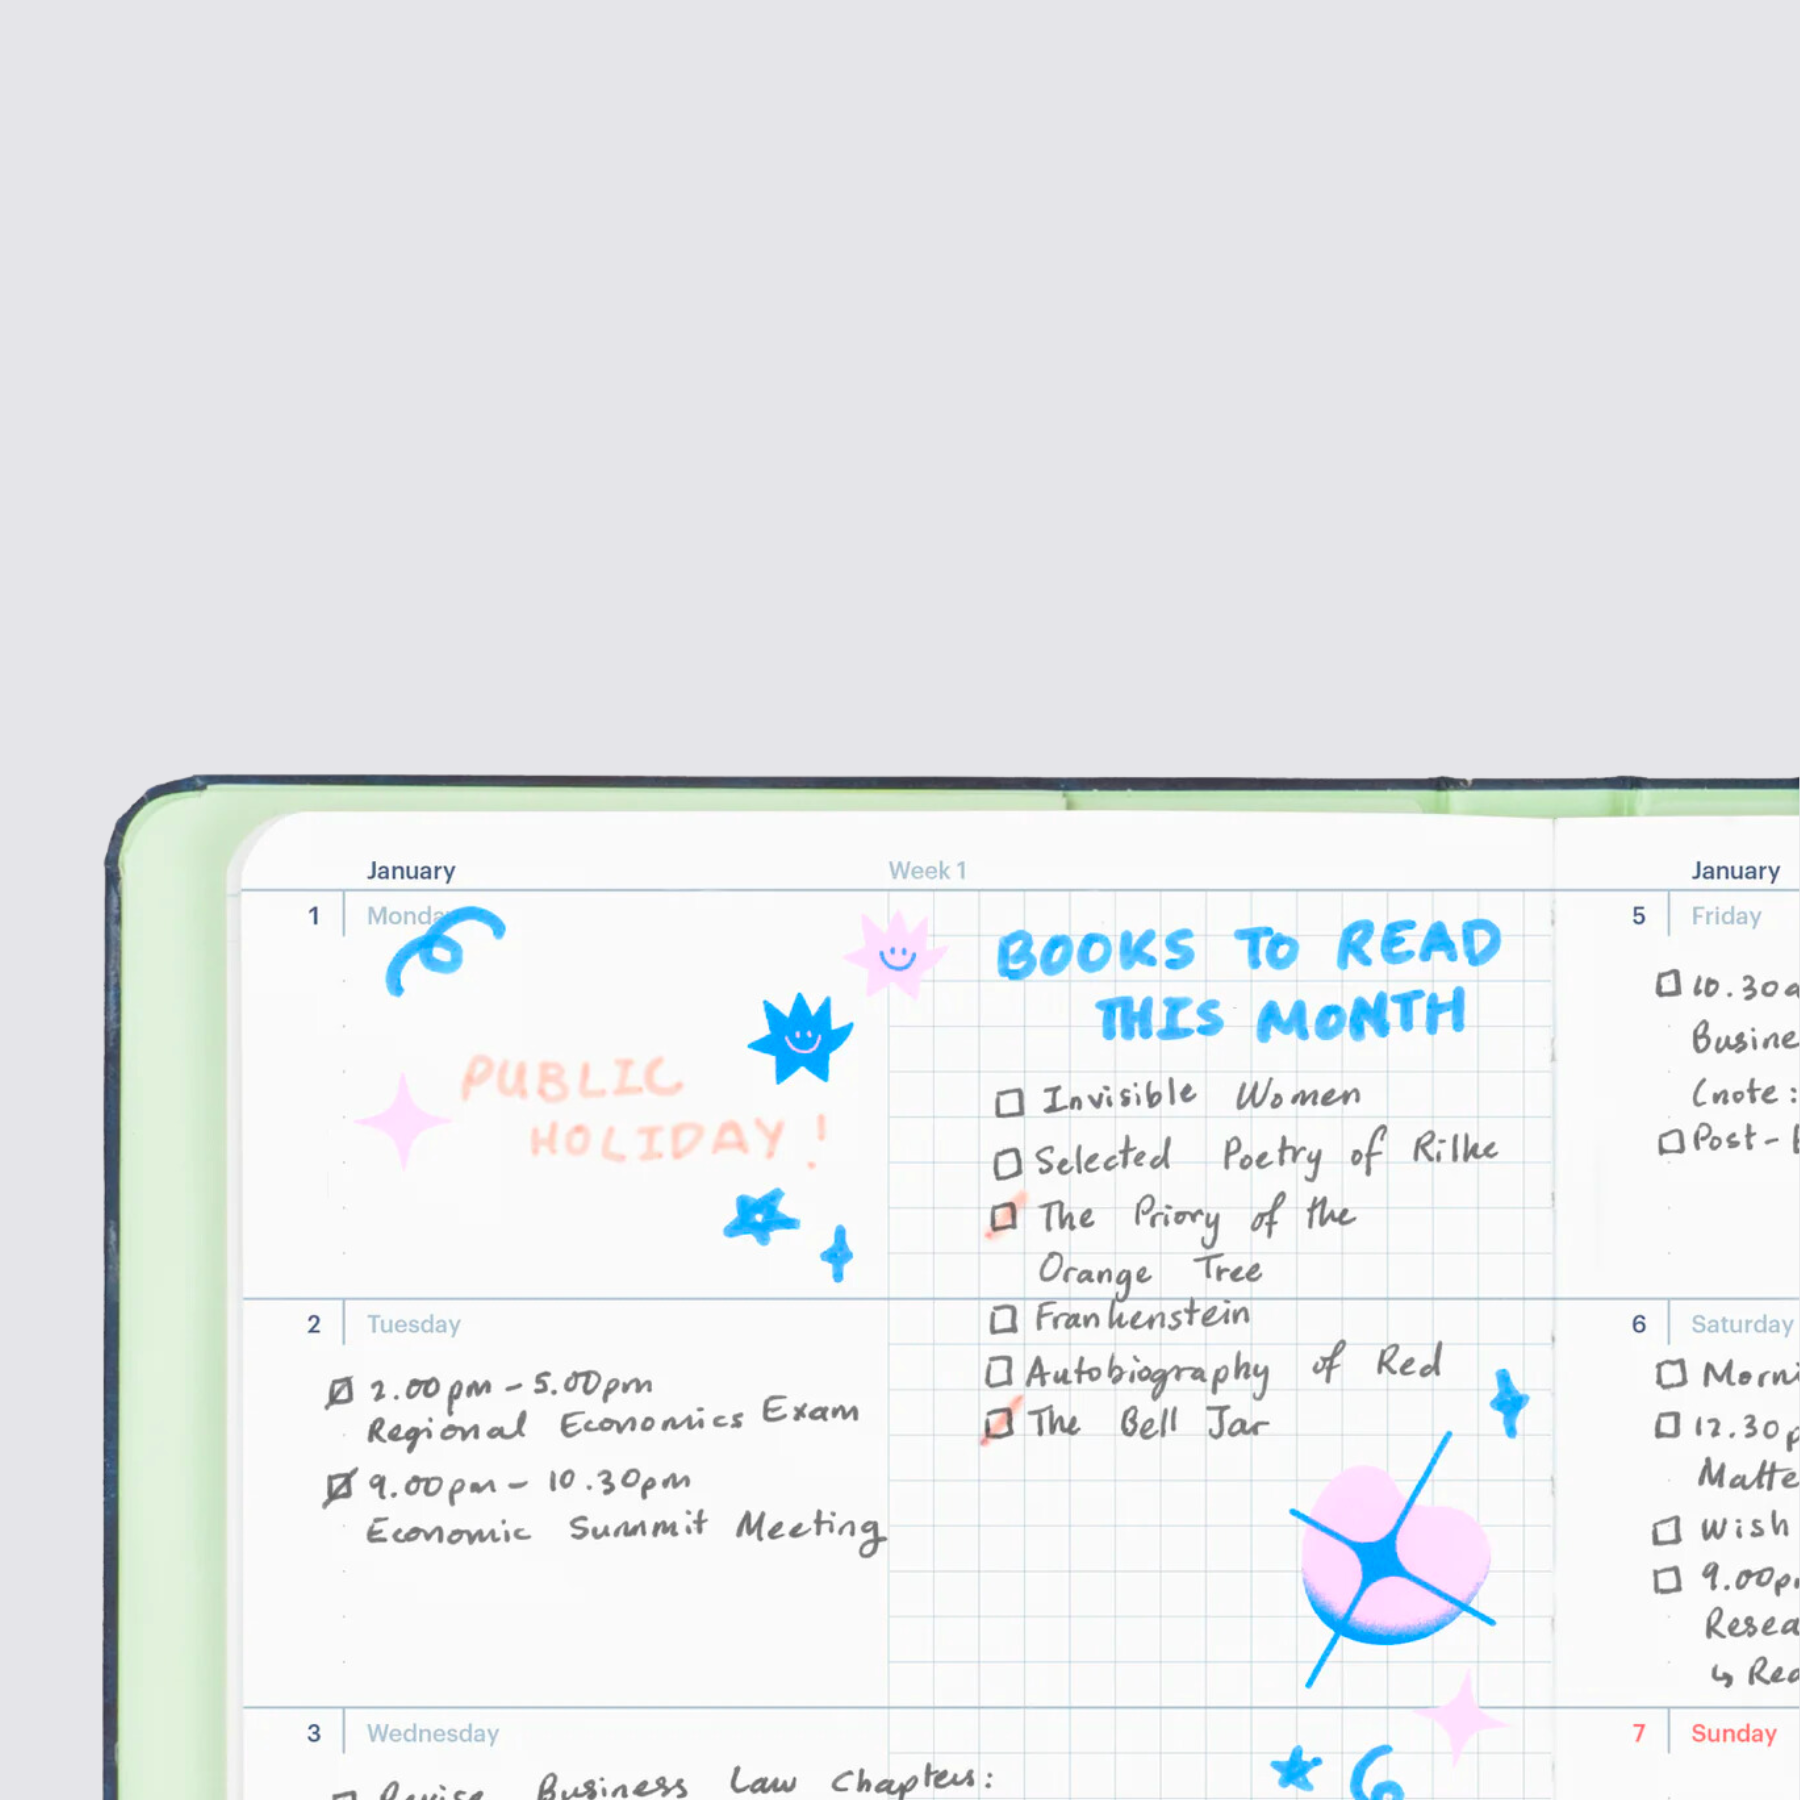 January
Week 1
1 Monday
PUBLIC
HOLIDAY!
BOOKS TO READ
THIS MONTH
Invisible Women
Selected Poetry of Rilke
The Priory of the
Orange Tree
Frankenstein
Autobiography of Red
The Bell Jar
2 Tuesday
2.00pm - 5.00pm
Regional Economics Exam
9.00pm - 10.30pm
Economic Summit Meeting
3 Wednesday
Revise Business Law Chapters:
January
5 Friday
10.30a
Busine
(note:
Post-
6 Saturday
Morni
12.30p
Matte
Wish
9.00p
Resea
↳ Rea
7 Sunday